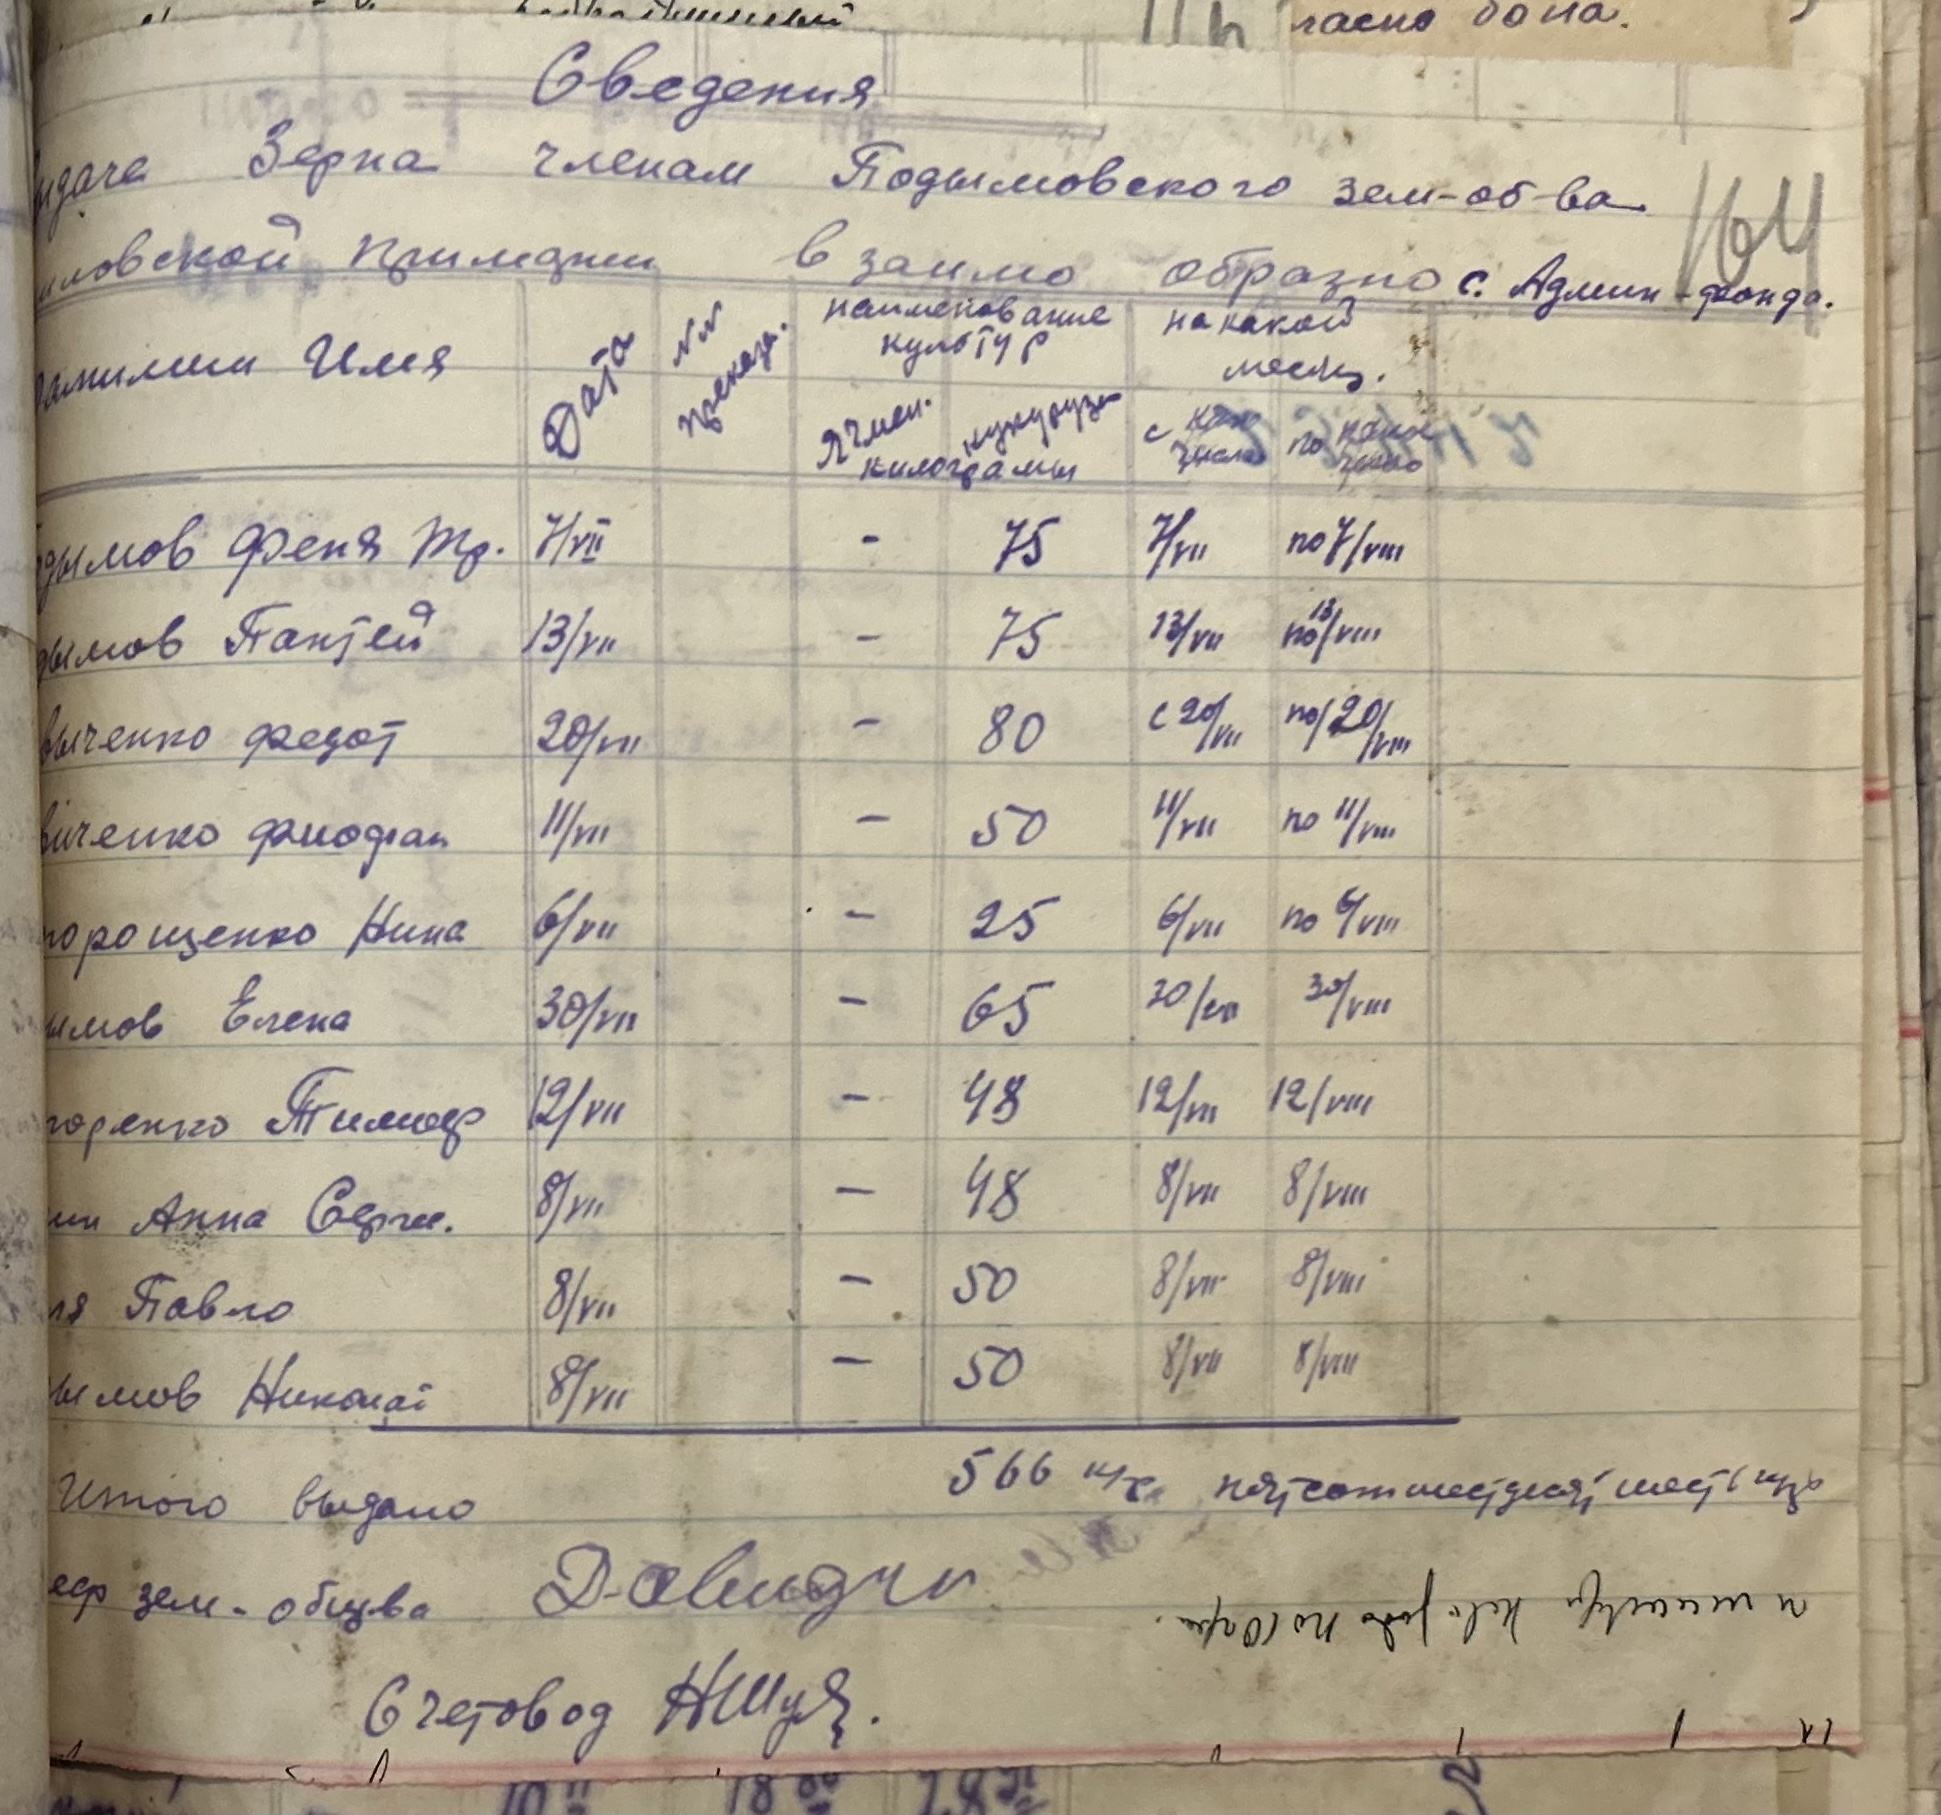 ласно бона.
Сведения
Выдаче Зерна членам Подымовского зем-об-ва
иловской Примэрии взаимо образно с. Админ-фонда.
104
Фамилии Имя Дата №№ приказа. наименование культур на какой месяц.
Ячмен. кукурузы с како числа по какое число
килограмы
дымов Феня Тр. 7/VII - 75 7/VII по 7/VIII
дымов Пантей 13/VII - 75 13/VII по 13/VIII
выченко Федот 20/VII - 80 с 20/VII по 20/VIII
виченко Фиофан 11/VII - 50 11/VII по 11/VIII
порощенко Нина 6/VII - 25 6/VII по 6/VIII
ымов Елена 30/VII - 65 30/VII 30/VIII
горенко Тимоф 12/VII - 48 12/VII 12/VIII
ин Анна Серги. 8/VII - 48 8/VII 8/VIII
ля Павло 8/VII - 50 8/VII 8/VIII
ымов Николаі 8/VII - 50 8/VII 8/VIII
Итого выдано 566 кг. пятсотшестдесят шесть
еф зем-общва
Счетовод